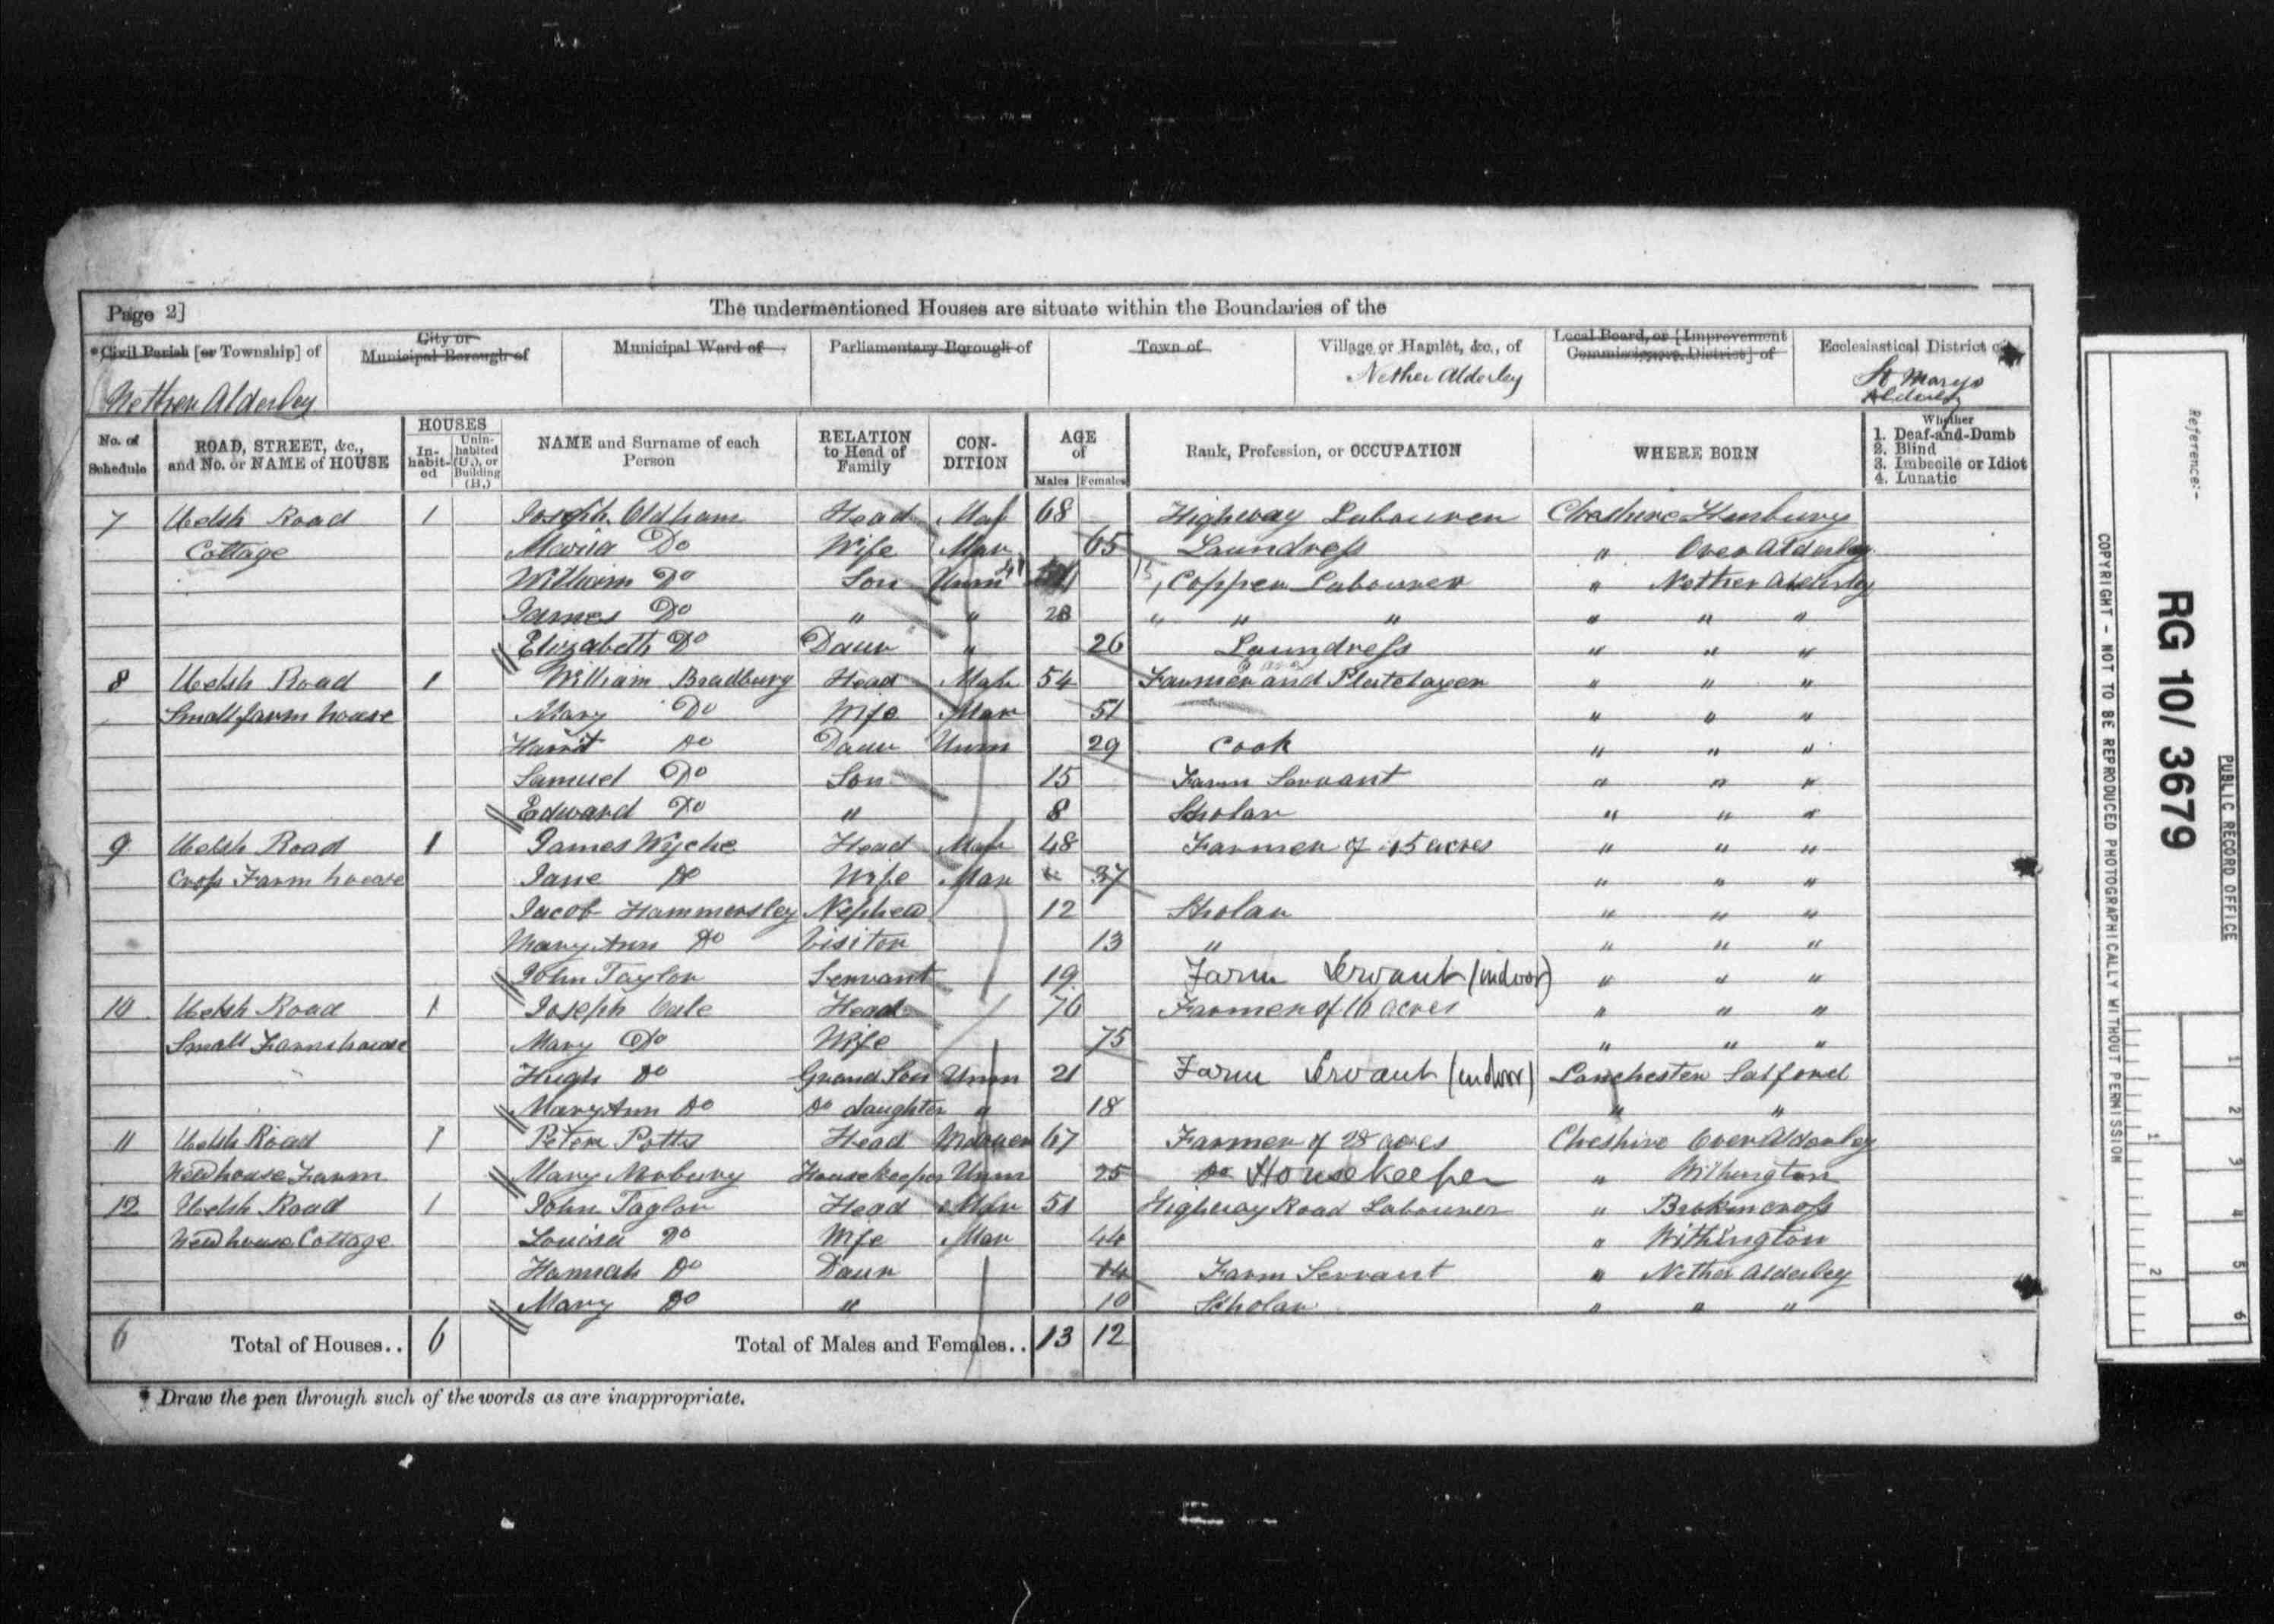 Page 2]
The undermentioned Houses are situate within the Boundaries of the
*Civil Parish [or Township] of
City or Municipal Borough of
Municipal Ward of
Parliamentary Borough of
Town of
Village or Hamlet, &c., of
Local Board, or [Improvement Commissioners District] of
Ecclesiastical District of
Nether Alderley
Nether Alderley
St Marys Alderley
No. of Schedule
ROAD, STREET, &c., and No. or NAME of HOUSE
HOUSES
In-habit-ed
Unin-habited (U.), or Building (B.)
NAME and Surname of each Person
RELATION to Head of Family
CON-DITION
AGE of
Males
Females
Rank, Profession, or OCCUPATION
WHERE BORN
Whether
1. Deaf-and-Dumb
2. Blind
3. Imbecile or Idiot
4. Lunatic
7 Welsh Road 1 Joseph Oldham Head Mar 68 Highway Labourer Cheshire Henbury
Cottage Maria Do Wife Mar 65 Laundress " Over Alderley
William Do Son Unm 41 Copper Labourer " Nether Alderley
James Do " " 28 " " " " " "
Elizabeth Do Daur " 26 Laundress " " "
8 Welsh Road 1 William Bradbury Head Mar 54 Farmer and Platelayer " " "
Small farm house Mary Do Wife Mar 51 " " "
Harrit Do Daur Unm 29 Cook " " "
Samuel Do Son 15 Farm Servant " " "
Edward Do " 8 Scholar " " "
9 Welsh Road 1 James Wyche Head Mar 48 Farmer of 15 acres " " "
Cross Farm house Jane Do Wife Mar 37 " " "
Jacob Hammersley Nephew 12 Scholar " " "
Mary Ann Do Visitor 13 " " " "
John Taylor Servant 19 Farm Servant (indoor) " " "
10 Welsh Road 1 Joseph Head 76 Farmer of 16 acres " " "
Small Farmhouse Mary Do Wife 75 " " "
Hugh Do Grand Son Unm 21 Farm Servant (indoor) Lanchester Salford
Mary Ann Do Do daughter " 18 " "
11 Welsh Road 1 Peter Potts Head 67 Farmer of 28 acres Cheshire Over Alderley
Newhouse Farm Mary Norbury Housekeeper Unm 25 Do Housekeeper " Withington
12 Welsh Road 1 John Taylor Head Mar 51 Highway Road Labourer " Brokincross
Newhouse Cottage Louisa Do Wife Mar 44 " Withington
Hannah Do Daur 14 Farm Servant " Nether Alderley
Mary Do " 10 Scholar " " "
6 Total of Houses.. 6 Total of Males and Females.. 13 12
* Draw the pen through such of the words as are inappropriate.
Reference:-
RG 10/ 3679
PUBLIC RECORD OFFICE
COPYRIGHT - NOT TO BE REPRODUCED PHOTOGRAPHICALLY WITHOUT PERMISSION
1 2 3 4 5 6
1 2